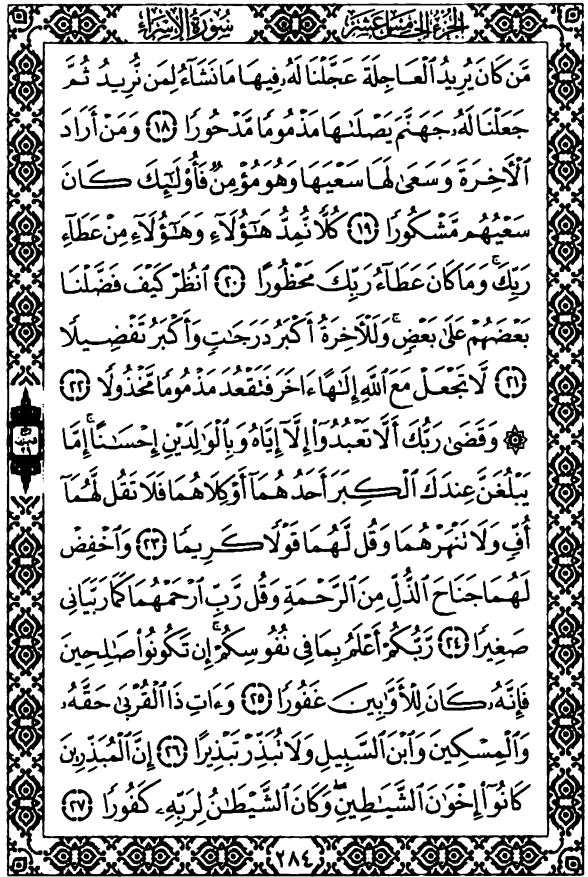 الجزء الخامس عشر
سورة الإسراء
مَّن كَانَ يُرِيدُ ٱلْعَاجِلَةَ عَجَّلْنَا لَهُۥ فِيهَا مَا نَشَآءُ لِمَن نُّرِيدُ ثُمَّ
جَعَلْنَا لَهُۥ جَهَنَّمَ يَصْلَىٰهَا مَذْمُومًا مَّدْحُورًا ١٨ وَمَنْ أَرَادَ
ٱلْأَخِرَةَ وَسَعَىٰ لَهَا سَعْيَهَا وَهُوَ مُؤْمِنٌ فَأُو۟لَٰٓئِكَ كَانَ
سَعْيُهُم مَّشْكُورًا ١٩ كُلًّا نُّمِدُّ هَٰٓؤُلَآءِ وَهَٰٓؤُلَآءِ مِنْ عَطَآءِ
رَبِّكَ ۚ وَمَا كَانَ عَطَآءُ رَبِّكَ مَحْظُورًا ٢٠ ٱنظُرْ كَيْفَ فَضَّلْنَا
بَعْضَهُمْ عَلَىٰ بَعْضٍ ۚ وَلَلْأَخِرَةُ أَكْبَرُ دَرَجَٰتٍ وَأَكْبَرُ تَفْضِيلًا
٢١ لَّا تَجْعَلْ مَعَ ٱللَّهِ إِلَٰهًا ءَاخَرَ فَتَقْعُدَ مَذْمُومًا مَّخْذُولًا ٢٢
۞ وَقَضَىٰ رَبُّكَ أَلَّا تَعْبُدُوٓا۟ إِلَّآ إِيَّاهُ وَبِٱلْوَٰلِدَيْنِ إِحْسَٰنًا ۚ إِمَّا
يَبْلُغَنَّ عِندَكَ ٱلْكِبَرَ أَحَدُهُمَآ أَوْ كِلَاهُمَا فَلَا تَقُل لَّهُمَآ
أُفٍّ وَلَا تَنْهَرْهُمَا وَقُل لَّهُمَا قَوْلًا كَرِيمًا ٢٣ وَٱخْفِضْ
لَهُمَا جَنَاحَ ٱلذُّلِّ مِنَ ٱلرَّحْمَةِ وَقُل رَّبِّ ٱرْحَمْهُمَا كَمَا رَبَّيَانِى
صَغِيرًا ٢٤ رَّبُّكُمْ أَعْلَمُ بِمَا فِى نُفُوسِكُمْ ۚ إِن تَكُونُوا۟ صَٰلِحِينَ
فَإِنَّهُۥ كَانَ لِلْأَوَّٰبِينَ غَفُورًا ٢٥ وَءَاتِ ذَا ٱلْقُرْبَىٰ حَقَّهُۥ
وَٱلْمِسْكِينَ وَٱبْنَ ٱلسَّبِيلِ وَلَا تُبَذِّرْ تَبْذِيرًا ٢٦ إِنَّ ٱلْمُبَذِّرِينَ
كَانُوٓا۟ إِخْوَٰنَ ٱلشَّيَٰطِينِ ۖ وَكَانَ ٱلشَّيْطَٰنُ لِرَبِّهِۦ كَفُورًا ٢٧
٢٨٤